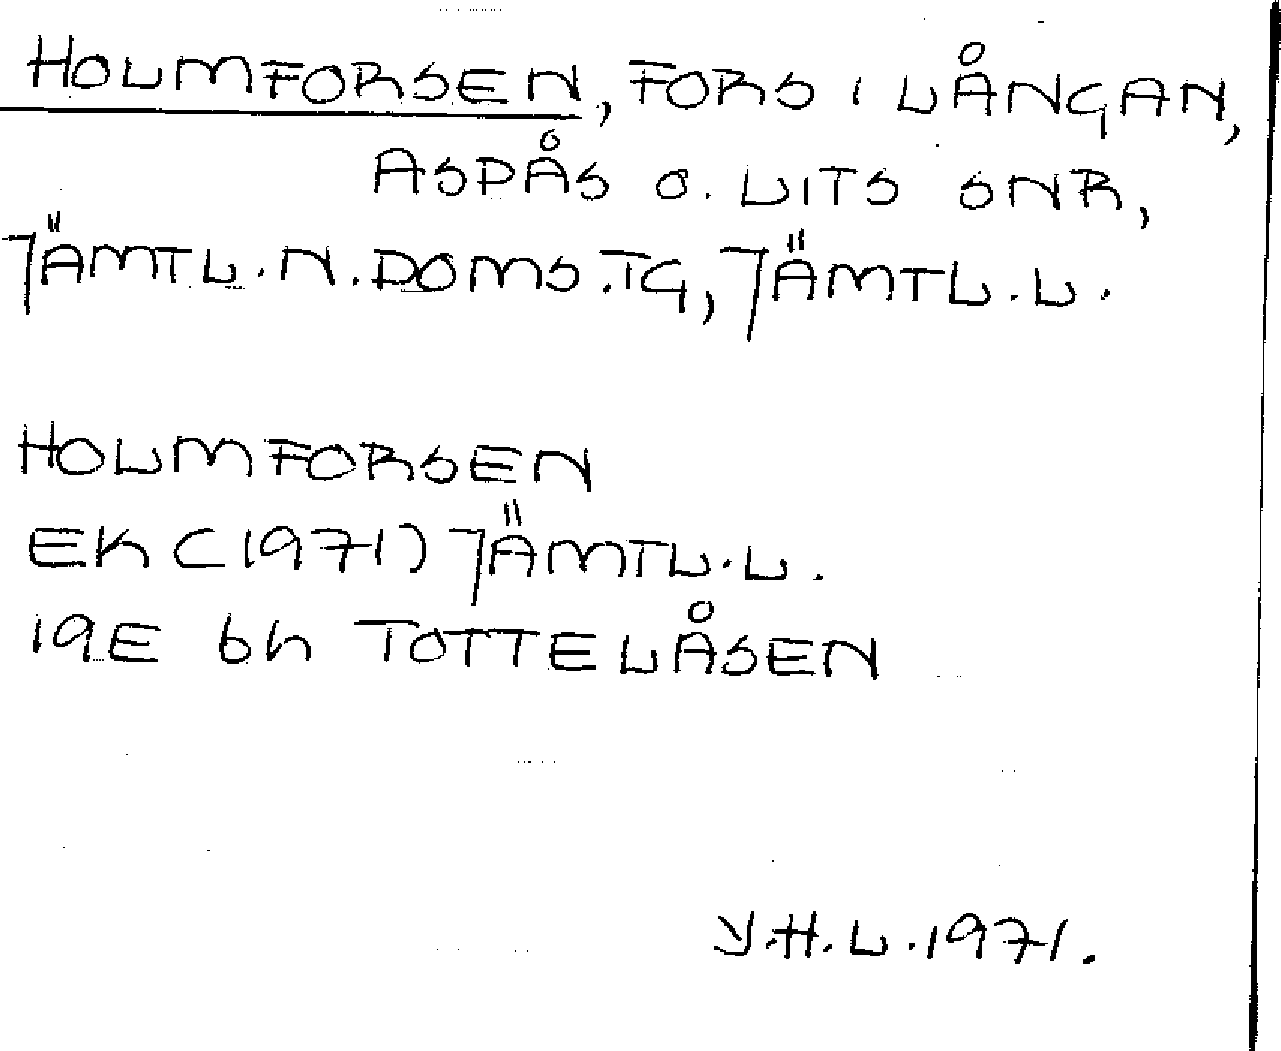 HOLMFORSEN, FORS I LÅNGAN,
ASPÅS O. LITS SNR,
JÄMTL. N. DOMS.TG, JÄMTL. L.
HOLMFORSEN
EK (1971) JÄMTL. L.
19E 6h TOTTELÅSEN
Y.H.L. 1971.